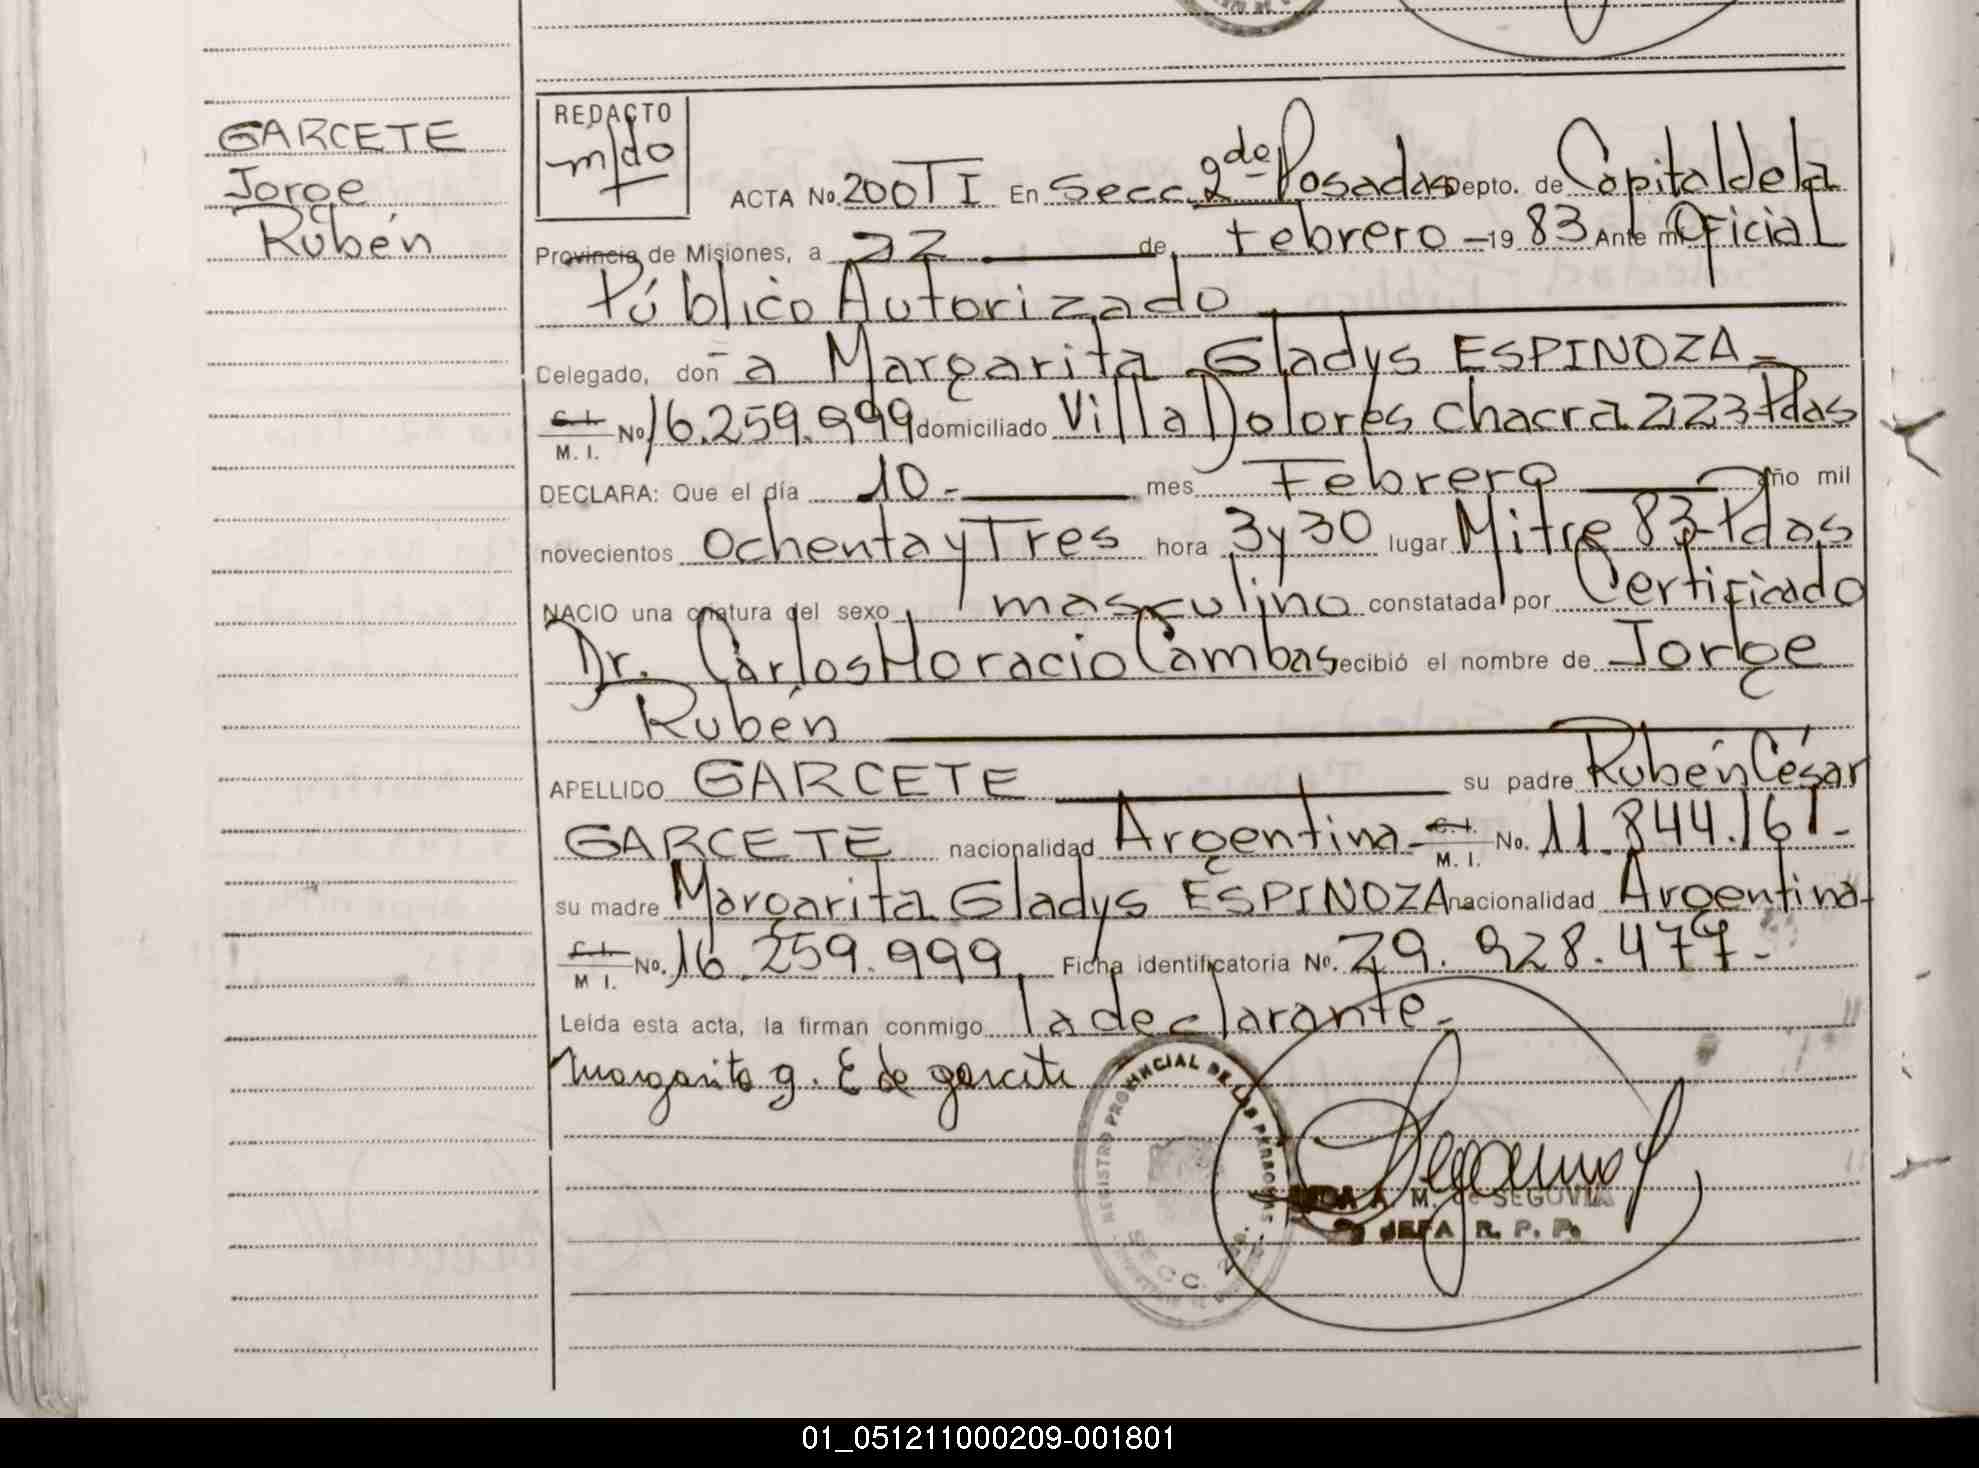 GARCETE
Jorge
Rubén
REDACTO
m/do
ACTA No. 200 T I En Secc. 2da Posadas Depto. de Capital de la
Provincia de Misiones, a 22 de Febrero - 19 83 Ante mi Oficial
Público Autorizado
Delegado, don a Margarita Gladys ESPINOZA -
C. I. M. I. No. 16.259.999 domiciliado Villa Dolores Chacra 223 - Pdas
DECLARA: Que el día 10 - mes Febrero año mil
novecientos Ochenta y Tres hora 3 y 30 lugar Mitre 83 - Pdas
NACIO una criatura del sexo masculino constatada por Certificado
Dr. Carlos Horacio Cambas recibió el nombre de Jorge
Rubén
APELLIDO GARCETE su padre Rubén César
GARCETE nacionalidad Argentina - C. I. M. I. No. 11.844.161 -
su madre Margarita Gladys ESPINOZA nacionalidad Argentina -
C. I. M I. No. 16.259.999 Ficha identificatoria No. 29.928.477 -
Leída esta acta, la firman conmigo la declarante -
Margarita g. E de garcete
REGISTRO PROVINCIAL DE LAS PERSONAS
SECC. 2da.
A. M. de SEGOVIA
JEFA R. P. P.
01_051211000209-001801